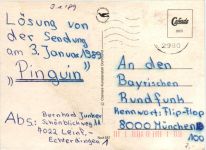 3.1.89
Lösung von
der Sendung
am 3. Januar 1989
"Pinguin"
Abs.: Bernhard Junker
Schönblickweg
7022 Leinf.-
Echterdingen 1
2990
An den
Bayrischen
Rundfunk
Kennwort: Flip-Flop
8000 München
100